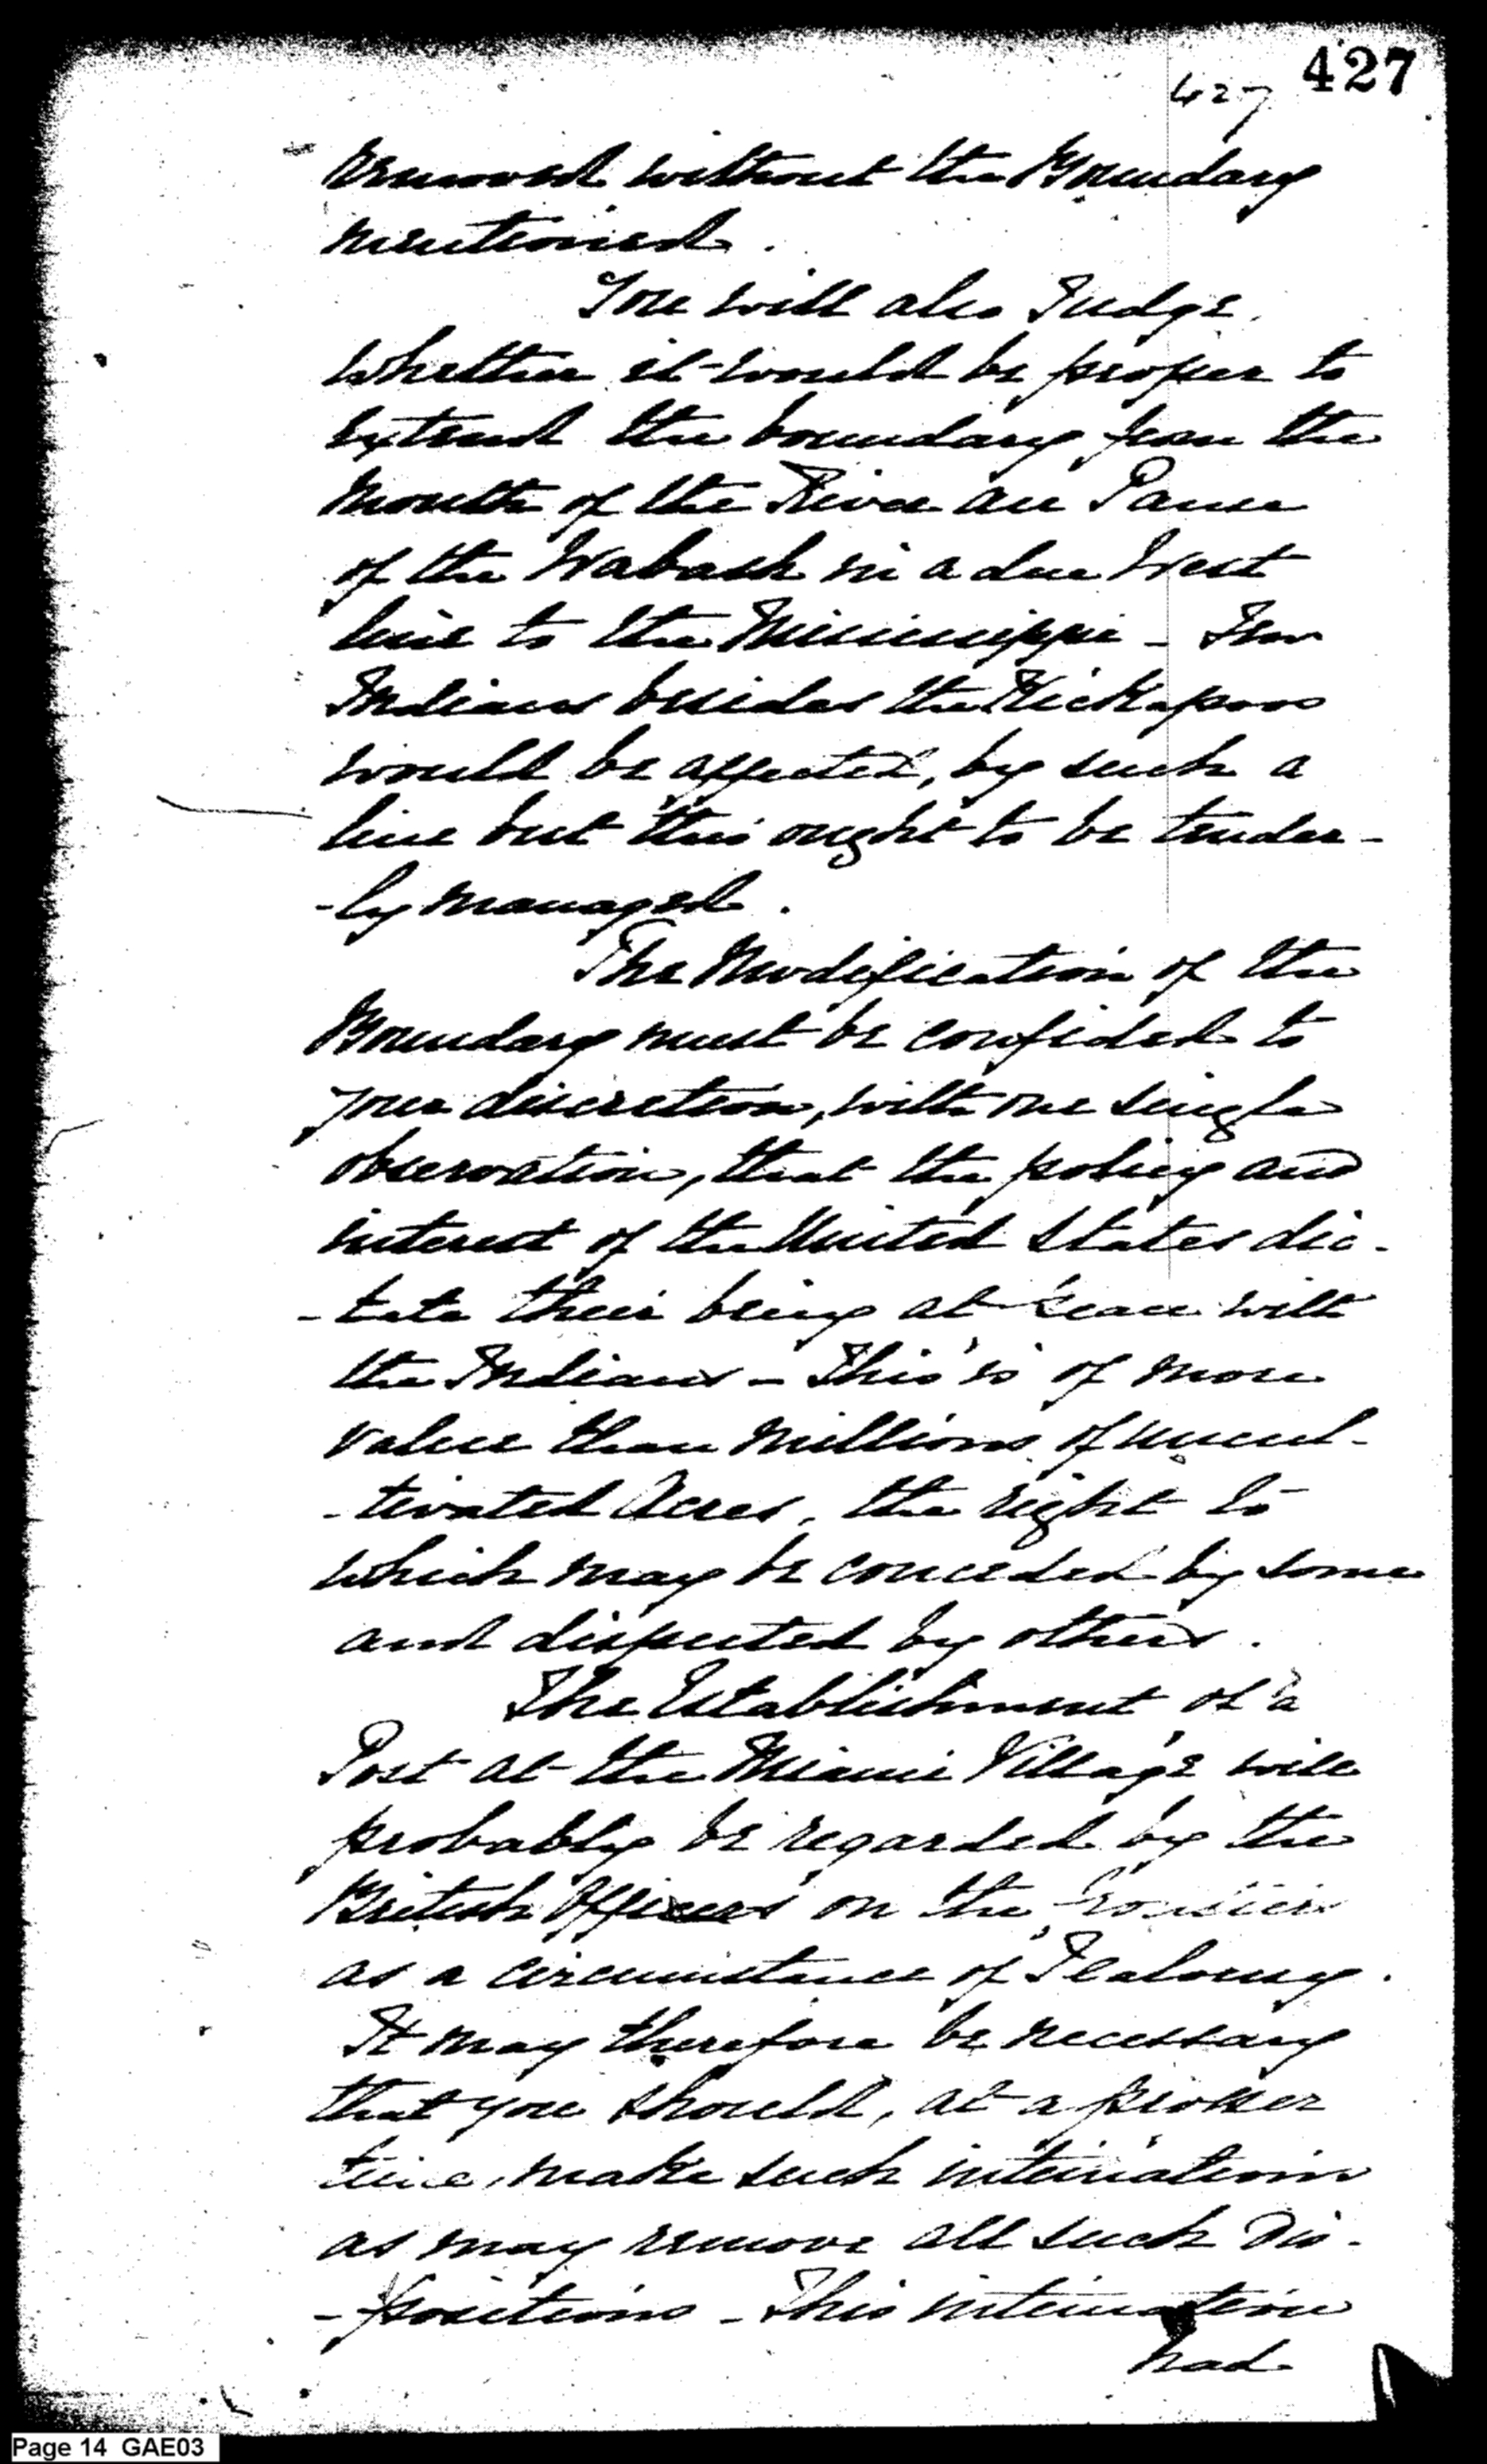 427
427
removed without the Boundary
mentioned.
You will also Judge,
whether it would be proper to
extend the boundary from the
Mouth of the River au Panse
of the Wabash in a due West
line to the Mississippi - Few
Indians besides the Kickapoos
would be affected, by such a
line but this ought to be tender-
-ly managed.
The Modification of the
Boundary must be confided to
your discretion, with one single
observation, that the policy and
interest of the United States dic-
-tate their being at Peace with
the Indians - This is of more
value than millions of uncul-
-tivated Acres, the right to
which may be conceded by some
and disputed by others.
The Establishment of a
Post at the Miami Village will
probably be regarded by the
British Officers on the frontiers
as a circumstance of Jealousy.
It may therefore be necessary
that you should, at a proper
time, make such intimations
as may remove all such Dis-
-positions - This intimation
had
Page 14 GAE03